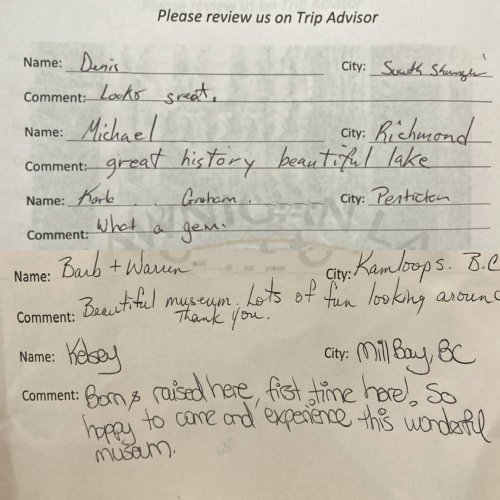 Please review us on Trip Advisor
Name: Denis City: South
Comment: Looks great.
Name: Michael City: Richmond
Comment: great history beautiful lake
Name: Karb Graham. City: Penticton
Comment: What a gem.
Name: Barb + Warren City: Kamloops. B.C
Comment: Beautiful museum. Lots of fun looking aroun
Thank you.
Name: Kelsey City: Mill Bay, BC
Comment: Born & raised here, fist time here! So
happy to come and experience this wonderful
museum.